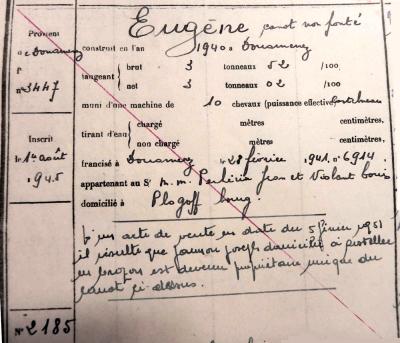 Eugène, canot non ponté
Provient
de Douarnenez
f°
n° 3447
construit en l'an 1940 à Douarnenez
jaugeant
brut 3 tonneaux 52 /100
net 3 tonneaux 02 /100
muni d'une machine de 10 chevaux (puissance effective)
tirant d'eau
chargé mètres centimètres,
non chargé mètres centimètres,
Inscrit
le 1er août
1945
francisé à Douarnenez le 28 février 1941 n° 6914
appartenant au Sr m.m. Jean et Violant
domicilié à Plogoff bourg.
d'un acte de vente en date du 5 février 1951
il résulte que Joseph domicilié à
est devenu propriétaire unique du
canot ci-dessus.
N° 2185